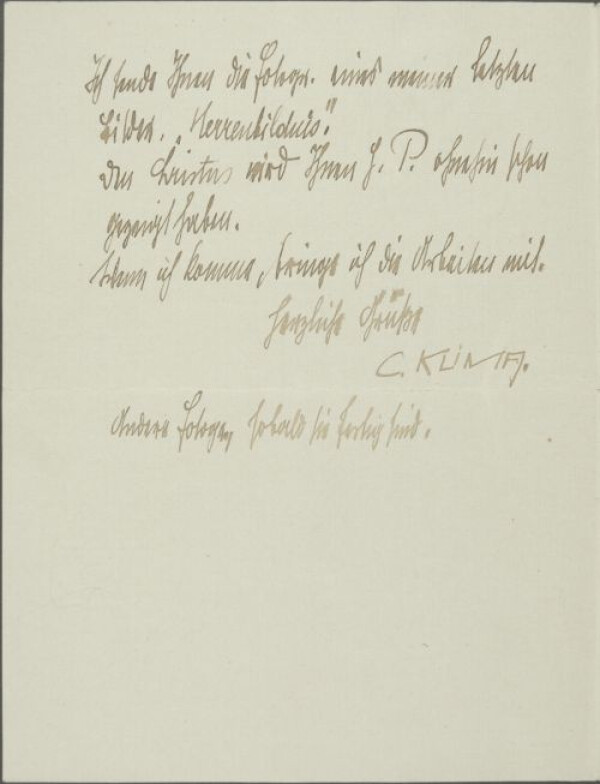 Ich sende Ihnen die Fotogr. eines meiner letzten
Bilder. „Herrenbildnis".
Den Christus wird Ihnen H. P. ohnehin schon
gezeigt haben.
Wenn ich komme, bringe ich die Arbeiten mit.
Herzliche Grüße
C. KLIMA.
Andere Fotogr, sobald sie fertig sind.